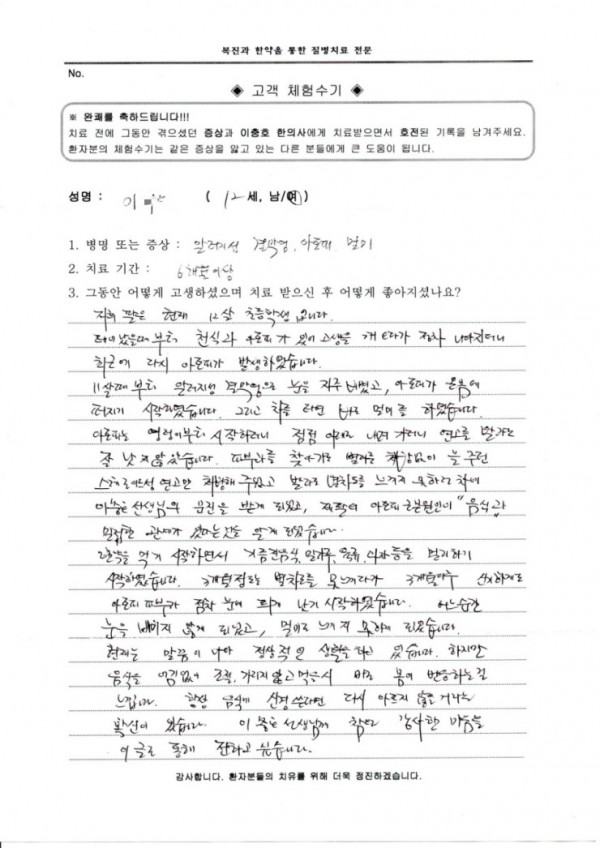 복진과 한약을 통한 질병치료 전문
No.
◈ 고객 체험수기 ◈
※ 완쾌를 축하드립니다!!!
치료 전에 그동안 겪으셨던 증상과 이충호 한의사에게 치료받으면서 호전된 기록을 남겨주세요.
환자분의 체험수기는 같은 증상을 앓고 있는 다른 분들에게 큰 도움이 됩니다.
성명 : 이 ( 12 세, 남/여 )
1. 병명 또는 증상 : 알러지성 결막염, 아토피, 멀미
2. 치료 기간 : 6개월이상
3. 그동안 어떻게 고생하셨으며 치료 받으신 후 어떻게 좋아지셨나요?
저희 딸은 현재 12살 초등학생 입니다.
태어났을때부터 천식과 아토피가 있어 고생을 개 하다가 점차 나아지더니
최근에 다시 아토피가 발생하였습니다.
11살때부터 알러지성 결막염으로 눈을 자주 비볐고, 아토피가 온몸에
퍼지기 시작하였습니다. 그리고 차를 타면 바로 멀미를 하였습니다.
아토피는 엉덩이부터 시작하더니 점점 아래로 내려가더니 연고를 발라도
잘 낫지 않았습니다. 피부과를 찾아가도 별다른 없이 늘 주던
스테로이드성 연고만 처방해 주었고 발라도 느끼지 못하던 차에
이충호 선생님의 복진을 받게 되었고, 아토피 근본원인이 "음식"과
밀접한 관계가 있다는것을 알게 되었습니다.
한약을 먹기 시작하면서 기름진음식, 밀가루, 육류, 과자등을 멀리하기
시작하였습니다. 3개월정도는 별차도를 모느끼다가 3개월이후 신기하게도
아토피 피부가 점차 눈에 띄게 낫기 시작하였습니다. 어느순간
눈을 비비지 않게 되었고, 멀미도 느끼지 못하게 되었습니다.
현재는 말끔히 나아 정상적인 생활을 하고 있습니다. 하지만
음식을 조절, 가리지않고 먹을시 바로 몸이 반응하는걸
느낍니다. 항상 음식에 신경쓴다면 다시 아프지 않을 거라는
확신이 있습니다. 이충호 선생님께 참으로 감사한 마음을
이 글로 통해 전하고 싶습니다.
감사합니다. 환자분들의 치유를 위해 더욱 정진하겠습니다.